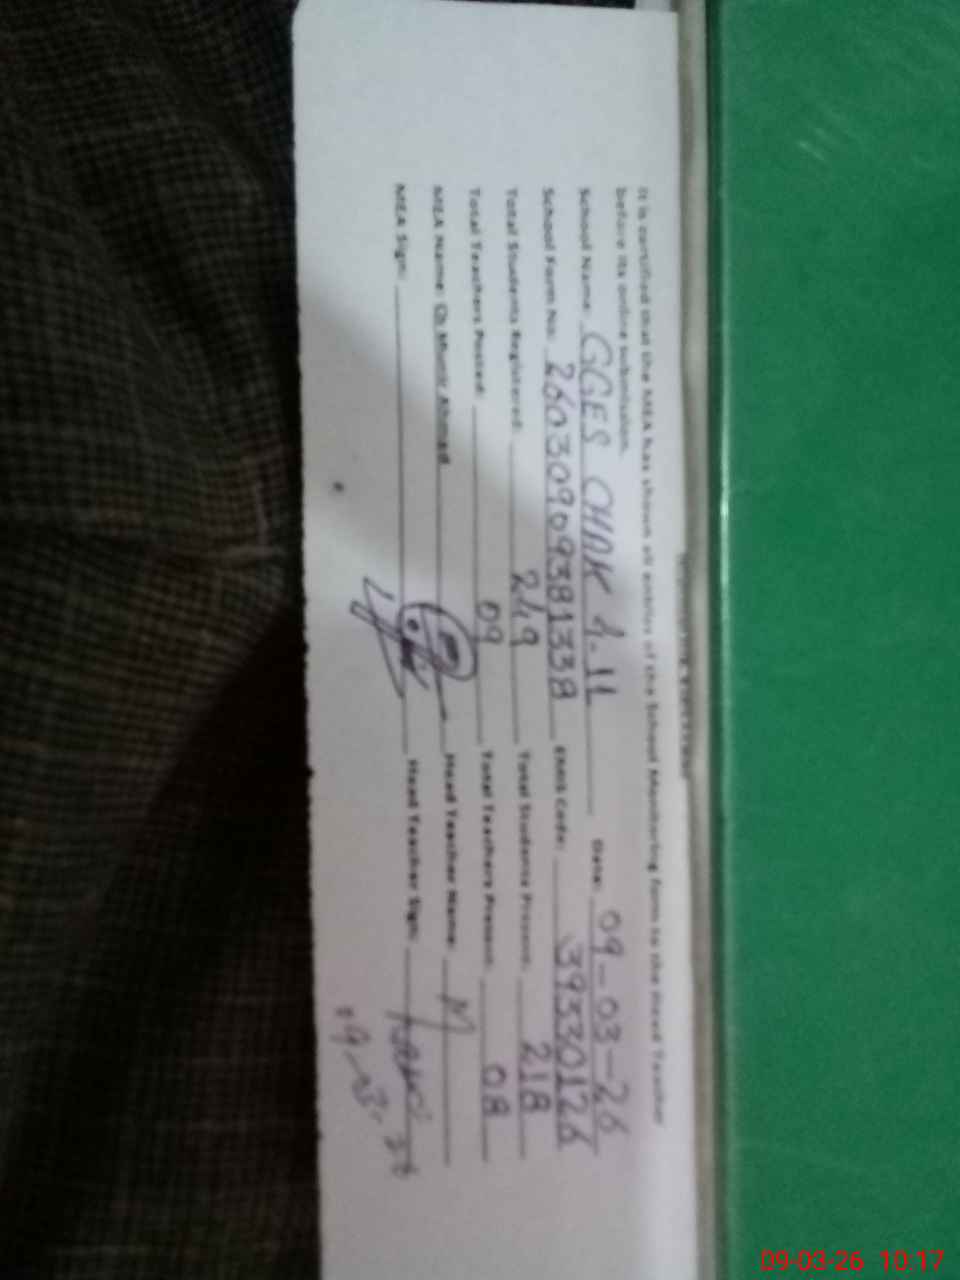 It is certified that the MEA has shown all entries of the School Monitoring form to the Head Teacher
before its online submission.
School Name: GGES CHAK 4-11 Date: 09-03-26
School Form No: 26030909381338 EMIS Code: 39330126
Total Students Registered: 249 Total Students Present: 218
Total Teachers Posted: 09 Total Teachers Present: 08
MEA Name: Ch Munir Ahmad Head Teacher Name:
MEA Sign: Head Teacher Sign:
09-03-26 10:17